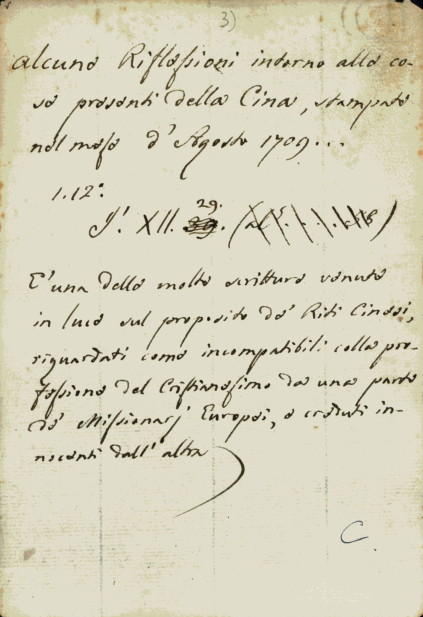 3)
Alcune Riflessioni intorno alle co-
se presenti della Cina, stampate
nel mese d'Agosto 1709...
1.12°.
29.
I'. XII. 39. (
E' una delle molte scritture venute
in luce sul proposito de' Riti Cinesi,
riguardati come incompatibili colla pro-
fessione del Cristianesimo da una parte
de' Missionarj Europei, e creduti in-
nocenti dall'altra
C